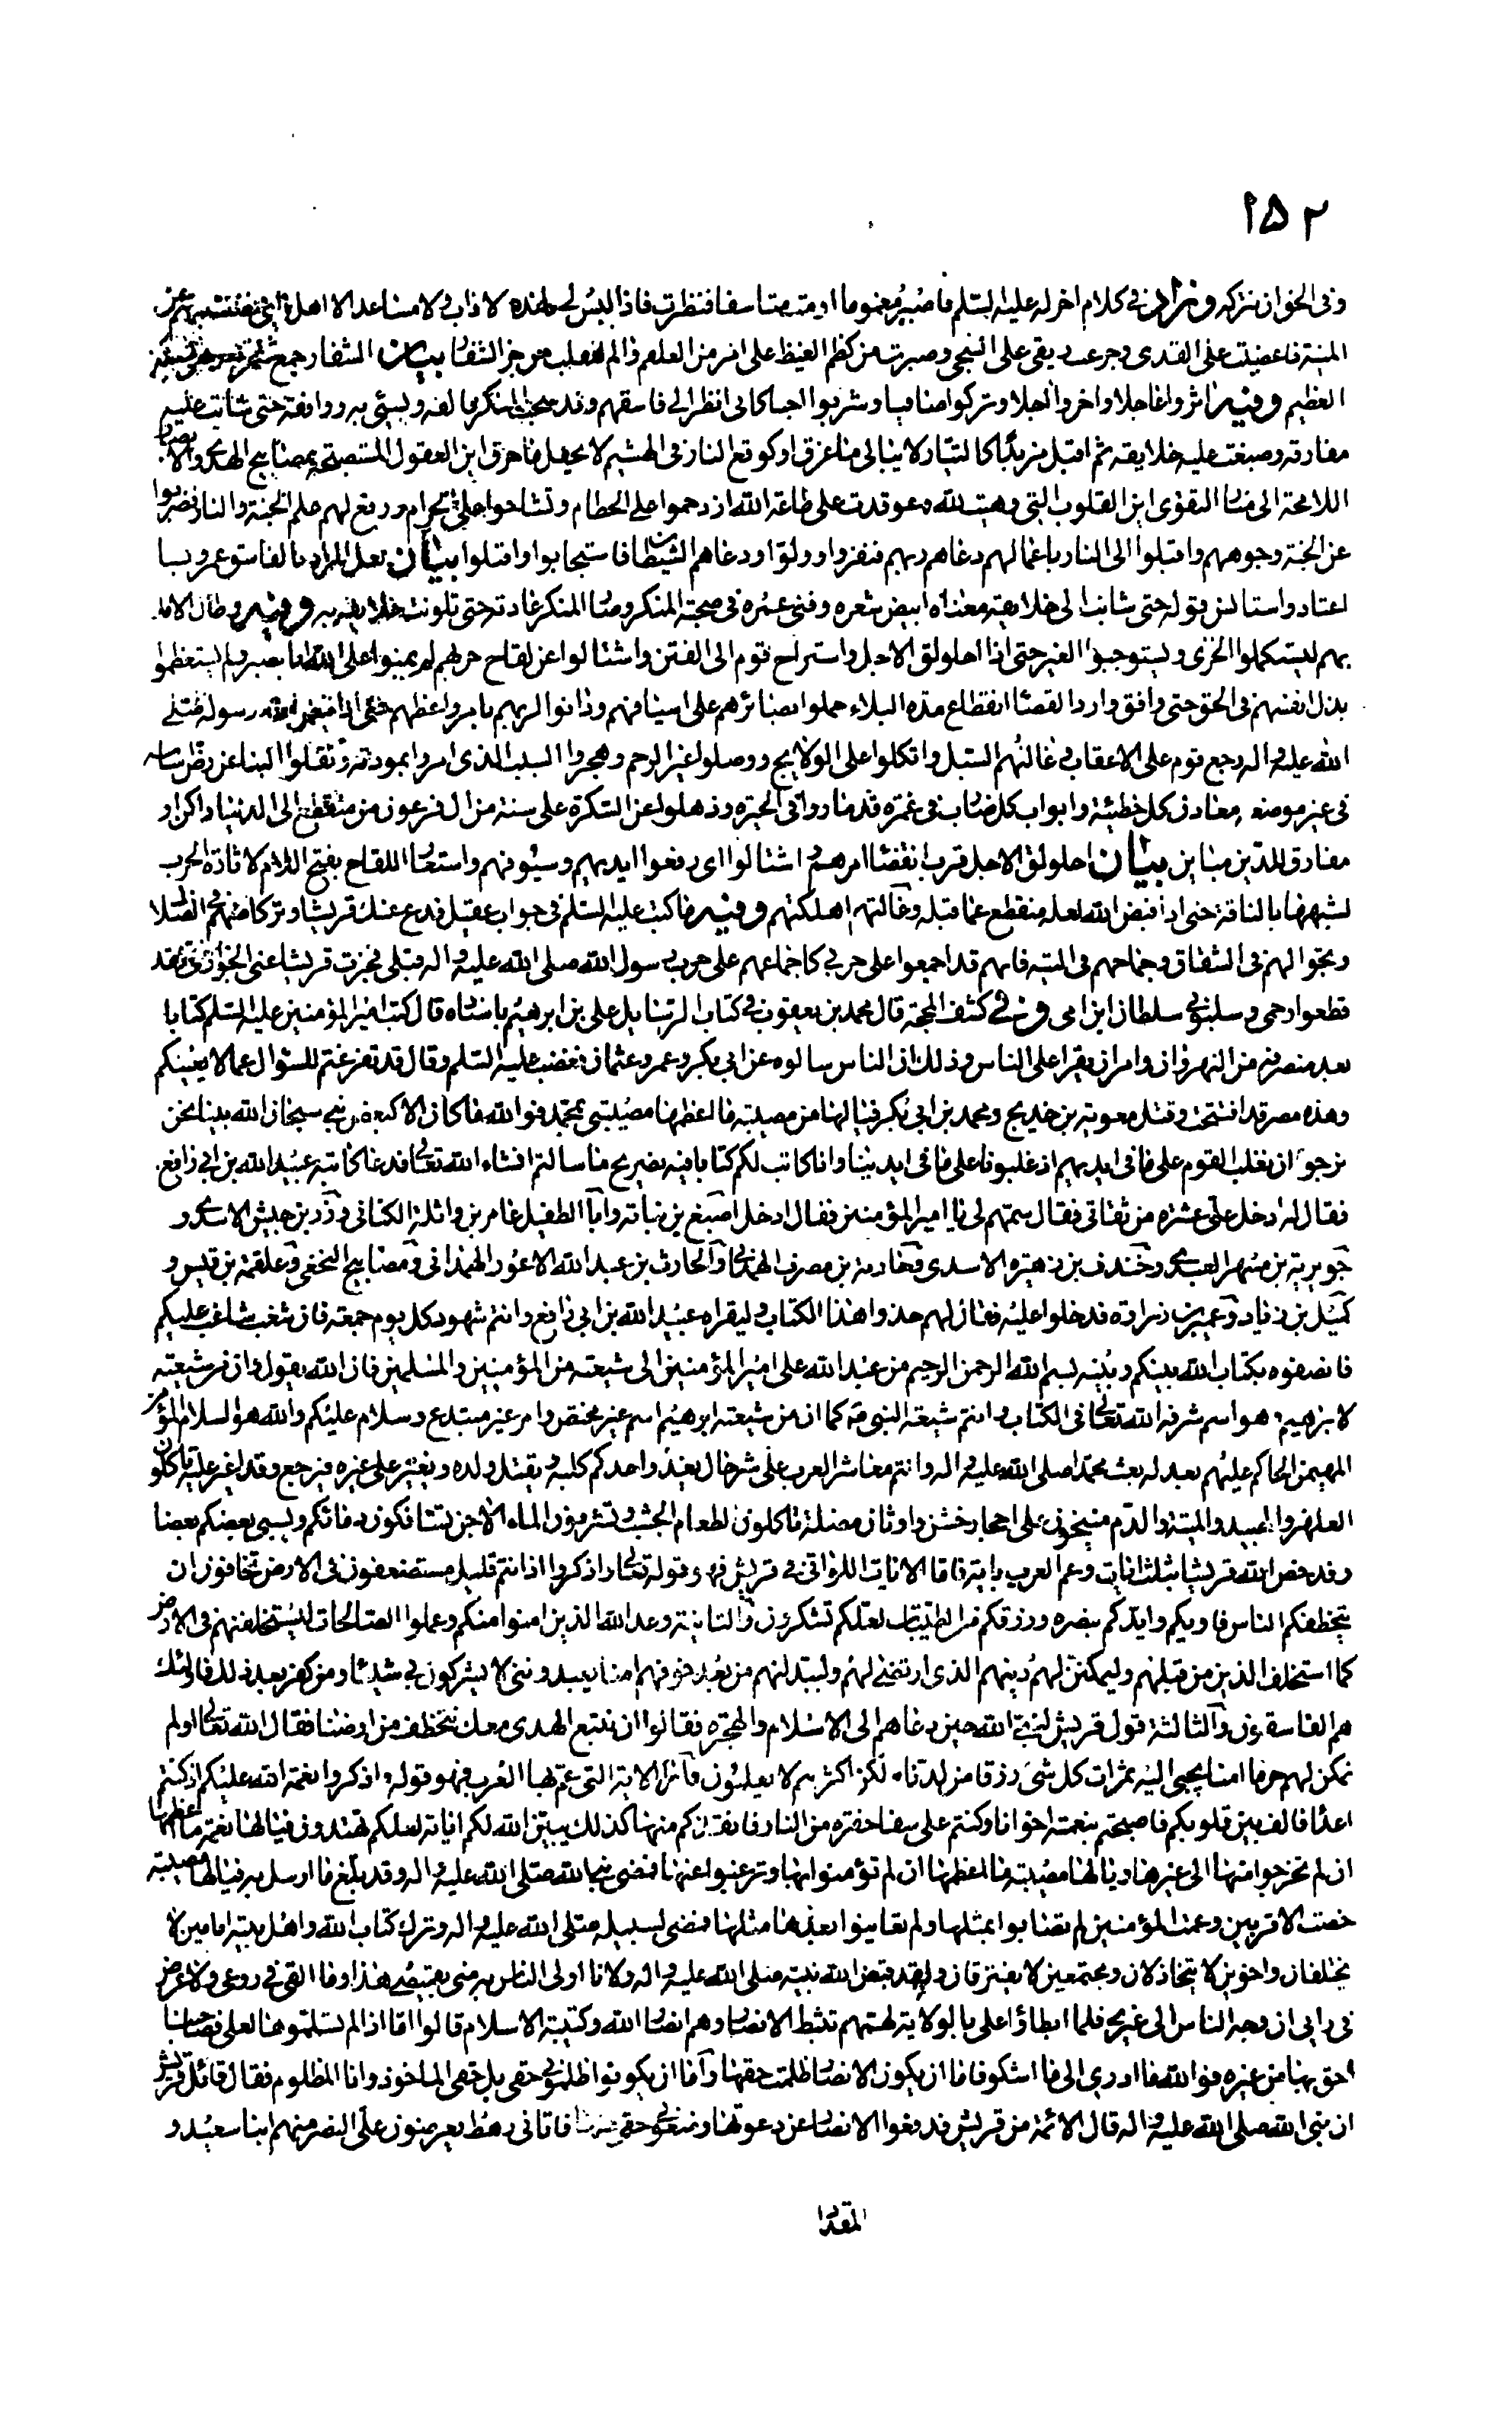 ١۵٢
وفى الحق ان تتركه وزاد فى كلام اخر له عليه السلم فاصبر مغموما او مت متاسفا فنظرت فاذا ليس لى رافد ولا ذاب ولا مساعد الا اهل بيتى فضننت بهم عن
المنية فاغضيت على القذى وجرعت ريقى على الشجى وصبرت من كظم الغيظ على امر من العلقم والم للقلب من حز الشفار بيان الشفار جمع شفرة وهى السكين
العظيم وفيه اثروا عاجلا واخروا اجلا وتركوا صافيا وشربوا اجنا كانى انظر الى فاسقهم وقد صحب المنكر فالفه وبسئ به ووافقه حتى شابت عليه
مفارقه وصبغت عليه خلايقه ثم اقبل مزبدا كالتيار لا يبالى ما غرق او كوقع النار فى الهشيم لا يحفل ما حرق اين العقول المستصبحة بمصابيح الهدى والابصار
اللامحة الى منار التقوى اين القلوب التى وهبت لله وعوقدت على طاعة الله ازدحموا على الحطام وتشاحوا على الحرام ورفع لهم علم الجنة والنار فصرفوا
عن الجنة وجوههم واقبلوا الى النار باعمالهم دعاهم ربهم فنفروا وولوا ودعاهم الشيطان فاستجابوا واقبلوا بيان لعل المراد بالفاسق عمر وبسا
اعتاد واستانس قوله حتى شابت الى خلايقه معناه ابيض شعره وفنى عمره فى صحبة المنكر وصار المنكر عادته حتى تلونت خلايقه به وفيه وطال الامد
بهم ليستكملوا الخزى ويستوجبوا الغير حتى اذا اخلولق الاجل واستراح قوم الى الفتن واشتالوا عن لقاح حربهم لم يمنوا على الله بالصبر ولم يستعظموا
بذل انفسهم فى الحق حتى وافق وارد القضا انقطاع مدة البلاء حملوا بصائرهم على اسيافهم ودانوا لربهم بامر واعظهم حتى اذا قبض الله رسوله صلى
الله عليه واله رجع قوم على الاعقاب وغالتهم السبل واتكلوا على الولايج ووصلوا غير الرحم وهجروا السبب الذى امروا بمودته ونقلوا البنا عن رص اساسه
فى غير موضعه معادن كل خطيئة وابواب كل ضارب فى غمرة قد ماروا فى الحيرة وذهلوا عن السكرة على سنة من ال فرعون من منقطع الى الدنيا راكن او
مفارق للدين مباين بيان اخلولق الاجل قرب انقضا امرهم اشتالوا اى رفعوا ايديهم وسيوفهم واستعار اللقاح بفتح اللام لاثارة الحرب
لشبهها بالناقة حتى اذا قبض الله لعله منقطع عما قبله وغالتهم اهلكتهم وفيه فاكتب عليه السلم فى جواب عقيل فدع عنك قريشا وتركاضهم فى الضلال
وتجوالهم فى الشقاق وجماحهم فى التيه فانهم قد اجمعوا على حربى كاجماعهم على حرب رسول الله صلى الله عليه واله قبلى فجزت قريشا عنى الجوازى فقد
قطعوا رحمى وسلبونى سلطان ابن امى وفى كشف المحجة قال محمد بن يعقوب فى كتاب الرسايل على بن ابرهيم باسناده قال كتب امير المؤمنين عليه السلم كتابا
بعد منصرفه من النهروان وامر ان يقرا على الناس وذلك ان الناس سالوه عن ابى بكر وعمر وعثمان فغضب عليه السلم وقال قد تفرغتم للسؤال عما لا يعنيكم
وهذه مصر قد افتتحت وقتل معوية بن خديج ومحمد بن ابى بكر فيالها من مصيبة ما اعظمها مصيبتى بمحمد فوالله ما كان الا كبعض بنى سبحان الله بينا نحن
نرجو ان نغلب القوم على ما فى ايديهم اذ غلبونا على ما فى ايدينا وانا كاتب لكم كتابا فيه تصريح ما سالتم انشاء الله تعالى فدعا كاتبه عبيد الله بن ابى رافع
فقال له ادخل على عشرة من ثقاتى فقال سمهم لى يا امير المؤمنين فقال ادخل اصبغ بن نباتة وابا الطفيل عامر بن واثلة الكنانى وزر بن حبيش الاسدى و
جويرية بن مسهر العبدى وخندف بن زهير الاسدى وحارثة بن مصرف الهمدانى والحارث بن عبد الله الاعور الهمدانى ومصابيح النخعى وعلقمة بن قيس و
كميل بن زياد وعمير بن زرارة فدخلوا عليه فقال لهم خذوا هذا الكتاب وليقراه عبيد الله بن ابى رافع وانتم شهود كل يوم جمعة فان شغب شاغب عليكم
فانصفوه بكتاب الله بينكم وبينه بسم الله الرحمن الرحيم من عبد الله على امير المؤمنين الى شيعته من المؤمنين والمسلمين فان الله يقول وان من شيعته
لابرهيم هو اسم شرفه الله تعالى فى الكتاب وانتم شيعة النبى كما ان من شيعته ابرهيم اسم غير مختص وامر غير مبتدع وسلام عليكم والله هو السلام المؤمن
المهيمن الحاكم عليهم بعدله بعث محمدا صلى الله عليه واله وانتم معاشر العرب على شر حال يغذو احدكم كلبه ويقتل ولده ويغير على غيره فيرجع وقد اغير عليه تاكلون
العلهز والهبيد والميتة والدم منيخون على احجار خشن واوثان مضلة تاكلون الطعام الجشب وتشربون الماء الاجن تسافكون دماءكم ويسبى بعضكم بعضا
وقد خص الله قريشا بثلث ايات وعم العرب باية فاما الايات اللواتى فى قريش فهو قوله تعالى واذكروا اذ انتم قليل مستضعفون فى الارض تخافون ان
يتخطفكم الناس فاويكم وايدكم بنصره ورزقكم من الطيبات لعلكم تشكرون والثانية وعد الله الذين امنوا منكم وعملوا الصالحات ليستخلفنهم فى الارض
كما استخلف الذين من قبلهم وليمكنن لهم دينهم الذى ارتضى لهم وليبدلنهم من بعد خوفهم امنا يعبدوننى لا يشركون بى شيئا ومن كفر بعد ذلك فاولئك
هم الفاسقون والثالثة قول قريش لنبى الله حين دعاهم الى الاسلام والهجرة فقالوا ان نتبع الهدى معك نتخطف من ارضنا فقال الله تعالى اولم
نمكن لهم حرما امنا يجبى اليه ثمرات كل شئ رزقا من لدنا ولكن اكثرهم لا يعلمون واما الاية التى عم بها العرب فهو قوله واذكروا نعمة الله عليكم اذ كنتم
اعداء فالف بين قلوبكم فاصبحتم بنعمته اخوانا وكنتم على شفا حفرة من النار فانقذكم منها كذلك يبين الله لكم اياته لعلكم تهتدون فيالها نعمة ما اعظمها
ان لم تخرجوا منها الى غيرها ويالها مصيبة ما اعظمها ان لم تؤمنوا بها وترغبوا عنها فمضى نبى الله صلى الله عليه واله وقد بلغ ما ارسل به فيالها مصيبة
خصت الاقربين وعمت المؤمنين لم تصابوا بمثلها ولم تعاينوا بعدها مثلها فمضى لسبيله صلى الله عليه واله وترك كتاب الله واهل بيته امامين لا
يختلفان واخوين لا يتخاذلان ومجتمعين لا يفترقان ولقد قبض الله نبيه صلى الله عليه واله ولانا اولى الناس به منى بقميصى هذا وما القى فى روعى ولا عرض
فى رايى ان وجه الناس الى غيرى فلما ابطاوا على بالولاية لهممهم تثبط الانصار وهم انصار الله وكتيبة الاسلام قالوا اما اذا لم تسلموها لعلى فصاحبنا
احق بها من غيره فوالله ما ادرى الى من اشكو فاما ان يكون الانصار ظلمت حقها واما ان يكونوا ظلمونى حقى بل حقى الماخوذ وانا المظلوم فقال قائل قريش
ان نبى الله صلى الله عليه واله قال الائمة من قريش فدفعوا الانصار عن دعوتها ومنعونى حقى منها فاتانى رهط يعرضون على النصر منهم ابنا سعيد و
المقداد